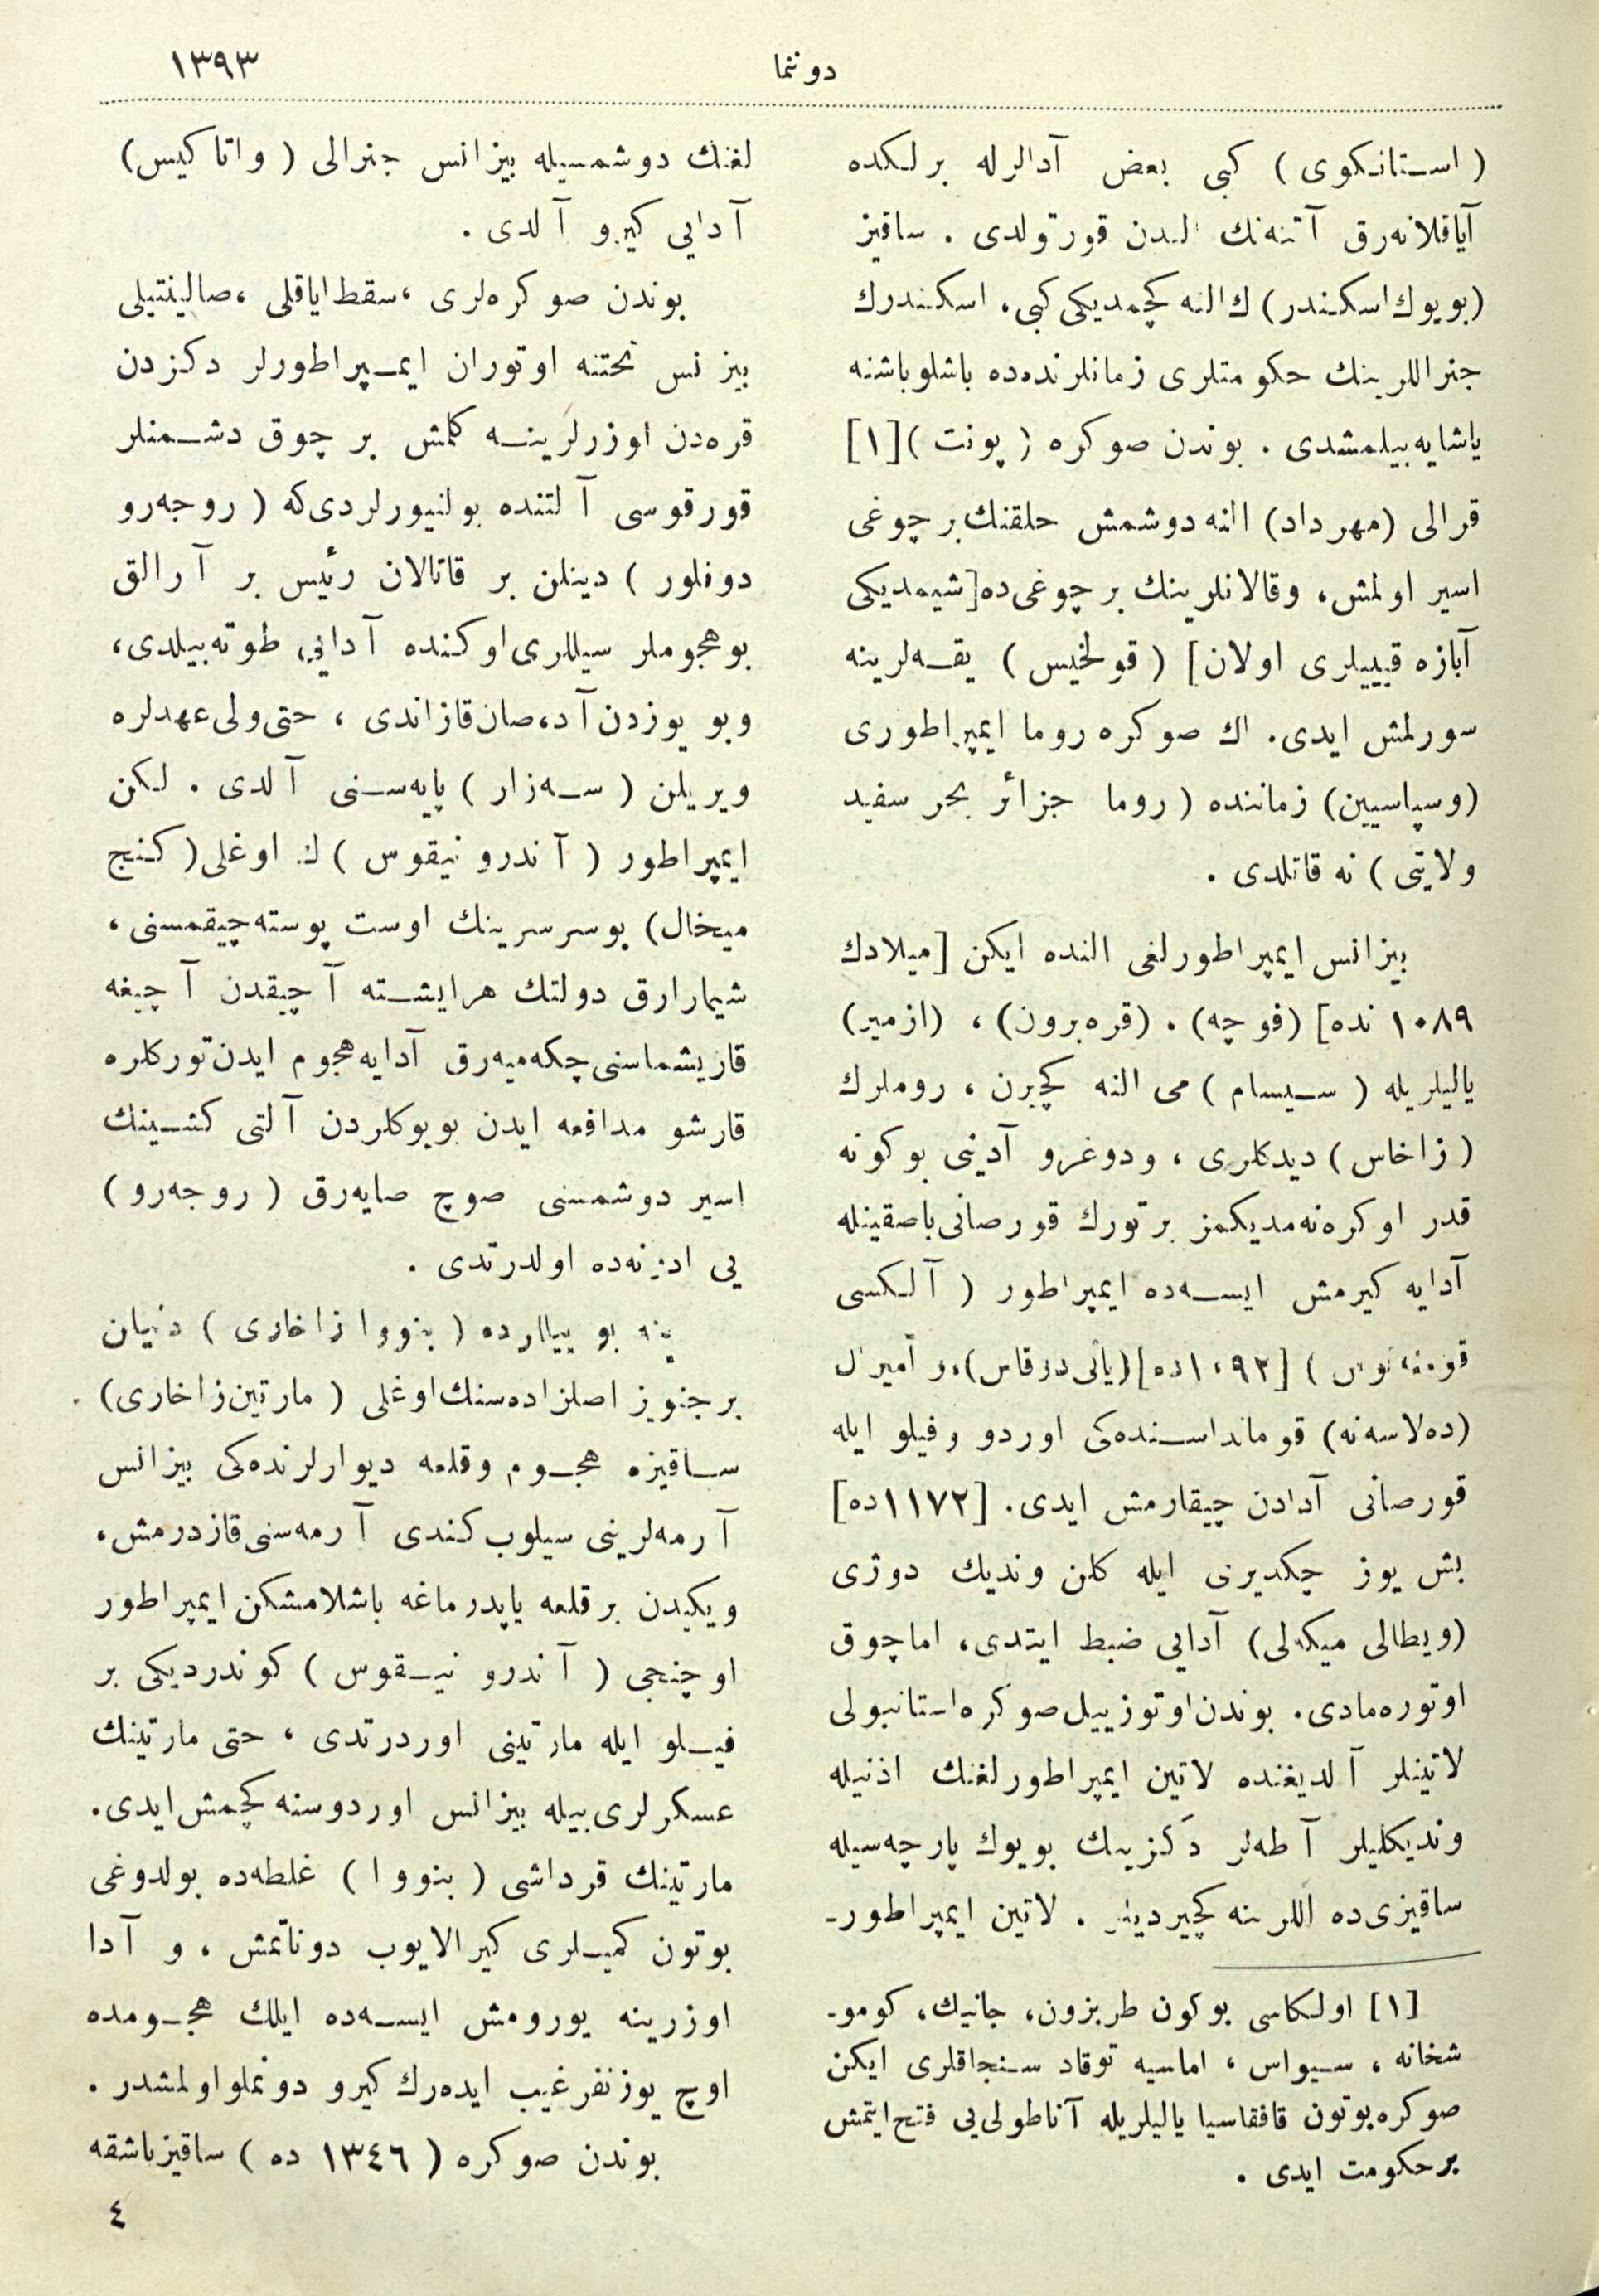 دوننما
١٣٩٣
( استانكوى ) كبى بعض آدالرله برلكده
آياقلانه‌رق آتنه‌نك الندن قورتولدى . ساقيز
(بويوك اسكندر) ك النه كچمديكى كبى، اسكندرك
جنراللرينك حكومتلرى زمانلرنده‌ده باشلو باشنه
ياشايه‌بيلمشدى . بوندن صوكره ( پونت )[١]
قرالى (مهرداد) النه دوشمش حلقنك بر چوغى
اسير اولمش، وقالانلرينك بر چوغى‌ده [شيمديكى
آبازه قبيلرى اولان] ( قولخيس ) يقه‌لرينه
سورلمش ايدى. اك صوكره روما ايمپراطورى
(وسپاسيين) زماننده ( روما جزائر بحر سفيد
ولايتى ) نه قاتلدى .
بيزانس ايمپراطورلغى النده ايكن [ميلادك
١٠٨٩ نده] (فوچه) ، (قره‌برون) ، (ازمير)
ياليلريله ( سيسام ) مى النه كچيرن ، روملرك
( زاخاس ) ديدكلرى ، ودوغرو آدينى بوكونه
قدر اوكره‌نه‌مديكمز بر تورك قورصانى باصقينله
آدايه كيرمش ايسه‌ده ايمپراطور ( آلكسى
قومنه‌نوس ) [١٠٩٢ ده] (يانى دوقاس)، و آميرال
(ده‌لاسه‌نه) قومانداسنده‌كى اوردو و فيلو ايله
قورصانى آدادن چيقارمش ايدى. [١١٧٢ ده]
بش يوز چكديرى ايله كلن ونديك دوژى
(ويطالى ميكه‌لى) آدايى ضبط ايتدى، اما چوق
اوتوره‌مادى. بوندن اوتوز ييل صوكره استانبولى
لاتينلر آلديغنده لاتين ايمپراطورلغنك اذنيله
ونديكليلر آطه‌لر دكزينك بويوك پارچه‌سيله
ساقيزى‌ده اللرينه كچيرديلر . لاتين ايمپراطور-
[١] اولكاسى بوكون طربزون، جانيك، كومو-
شخانه ، سيواس ، اماسيه توقاد سنجاقلرى ايكن
صوكره بوتون قافقاسيا ياليلريله آناطولى‌يى فتح ايتمش
بر حكومت ايدى .
لغنك دوشمسيله بيزانس جنرالى ( واتاكيس)
آدايى كيرو آلدى .
بوندن صوكره‌لرى ، سقط اياقلى ، صالينتيلى
بيزنس تختنه اوتوران ايمپراطورلر دكزدن
قره‌دن اوزرلرينه كلمش بر چوق دشمنلر
قورقوسى آلتنده بولنيورلردى كه ( روجه‌رو
دوفلور ) دينلن بر قاتالان رئيس بر آرالق
بو هجوملر سيللرى اوكنده آدايى طوته‌بيلدى،
وبو يوزدن آد، صان قازاندى ، حتى ولى عهدلره
ويريلن ( سه‌زار ) پايه‌سنى آلدى . لكن
ايمپراطور ( آندرونيقوس ) ك اوغلى ( كنج
ميخال) بوسرسرينك اوست پوسته چيقمسنى ،
شيمارارق دولتك هر ايشته آچيقدن آچيغه
قاريشماسنى چكه‌ميه‌رق آدايه هجوم ايدن توركلره
قارشو مدافعه ايدن بويوكلردن آلتى كشينك
اسير دوشمسنى صوچ صايه‌رق ( روجه‌رو )
يى ادرنه‌ده اولدرتدى .
ينه بو ييللرده ( بنووا زاخارى ) دنيلن
بر جنويز اصلزاده‌سنك اوغلى ( مارتين زاخارى)
ساقيزه هجوم وقلعه ديوارلرنده‌كى بيزانس
آرمه‌لرينى سيلوب كندى آرمه‌سنى قازدرمش،
ويكيدن بر قلعه ياپدرماغه باشلامشكن ايمپراطور
اوچنجى ( آندرونيقوس ) كوندرديكى بر
فيلو ايله مارتينى اوردرتدى ، حتى مارتينك
عسكرلرى بيله بيزانس اوردوسنه كچمش ايدى.
مارتينك قرداشى ( بنووا ) غلطه‌ده بولدوغى
بوتون كميلرى كيرالايوب دوناتمش ، و آدا
اوزرينه يورومش ايسه‌ده ايلك هجومده
اوچ يوز نفر غيب ايده‌رك كيرو دونملو اولمشدر .
بوندن صوكره ( ١٣٤٦ ده ) ساقيز باشقه
٤